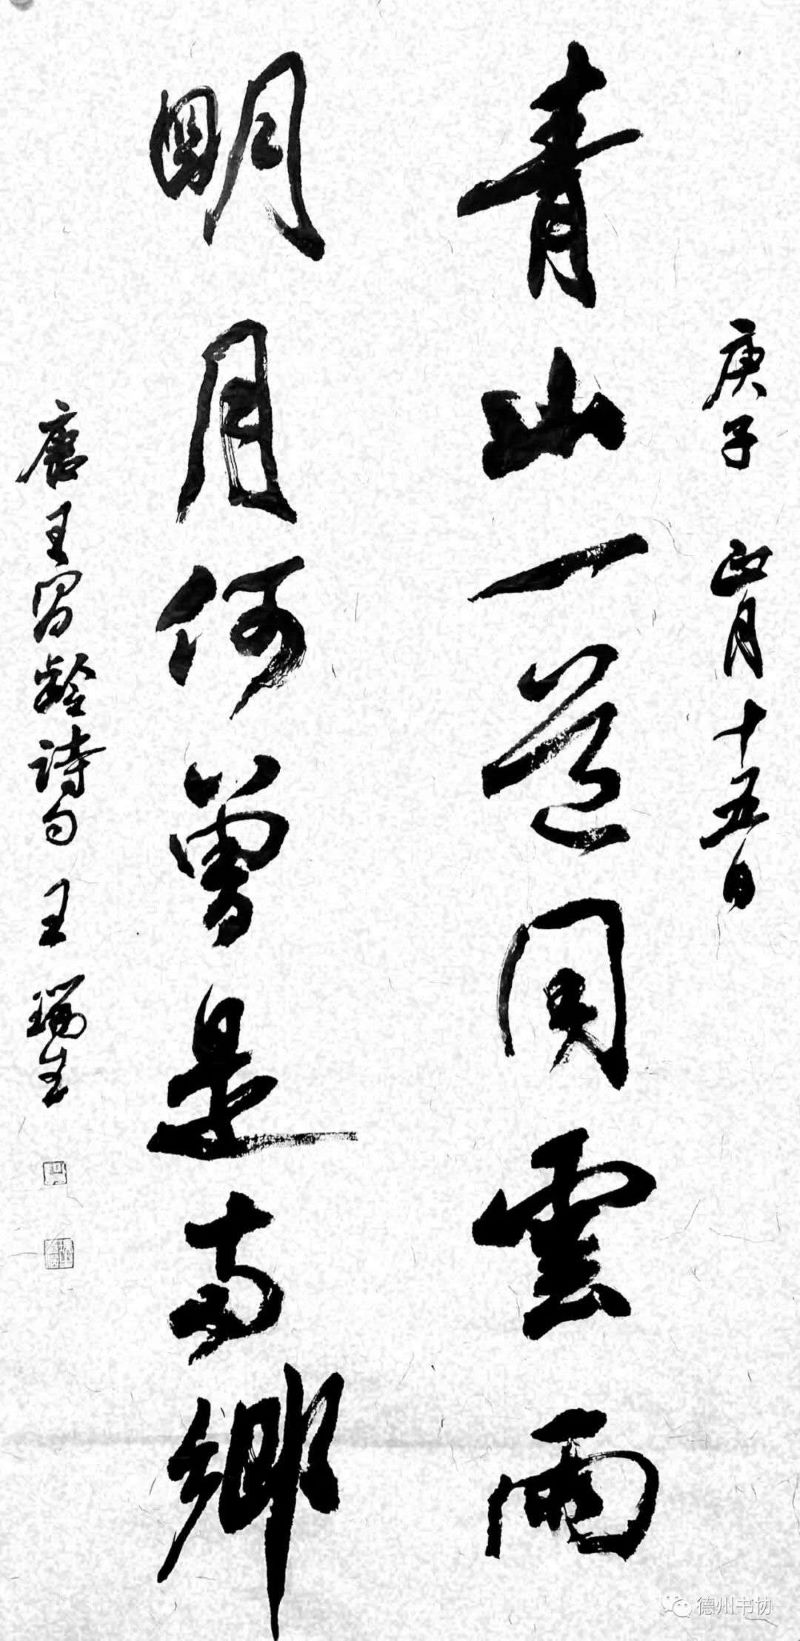 庚子 正月十五日
青山一道同雲雨
明月何曾是两鄉
唐王昌齡詩句 王瑞生
德州书协